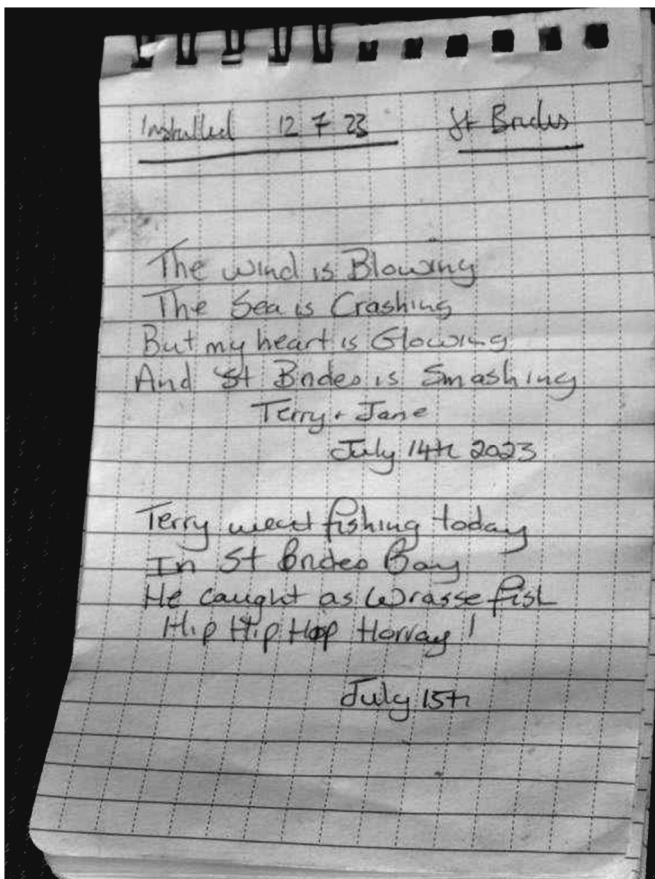 Installed 12 7 23 St Brides
The wind is Blowing
The Sea is Crashing
But my heart is Glowing
And St Brides is Smashing
Terry + Jane
July 14th 2023
Terry went fishing today
In St Brides Bay
He caught as Wrasse fish
Hip Hip Hop Horray!
July 15th